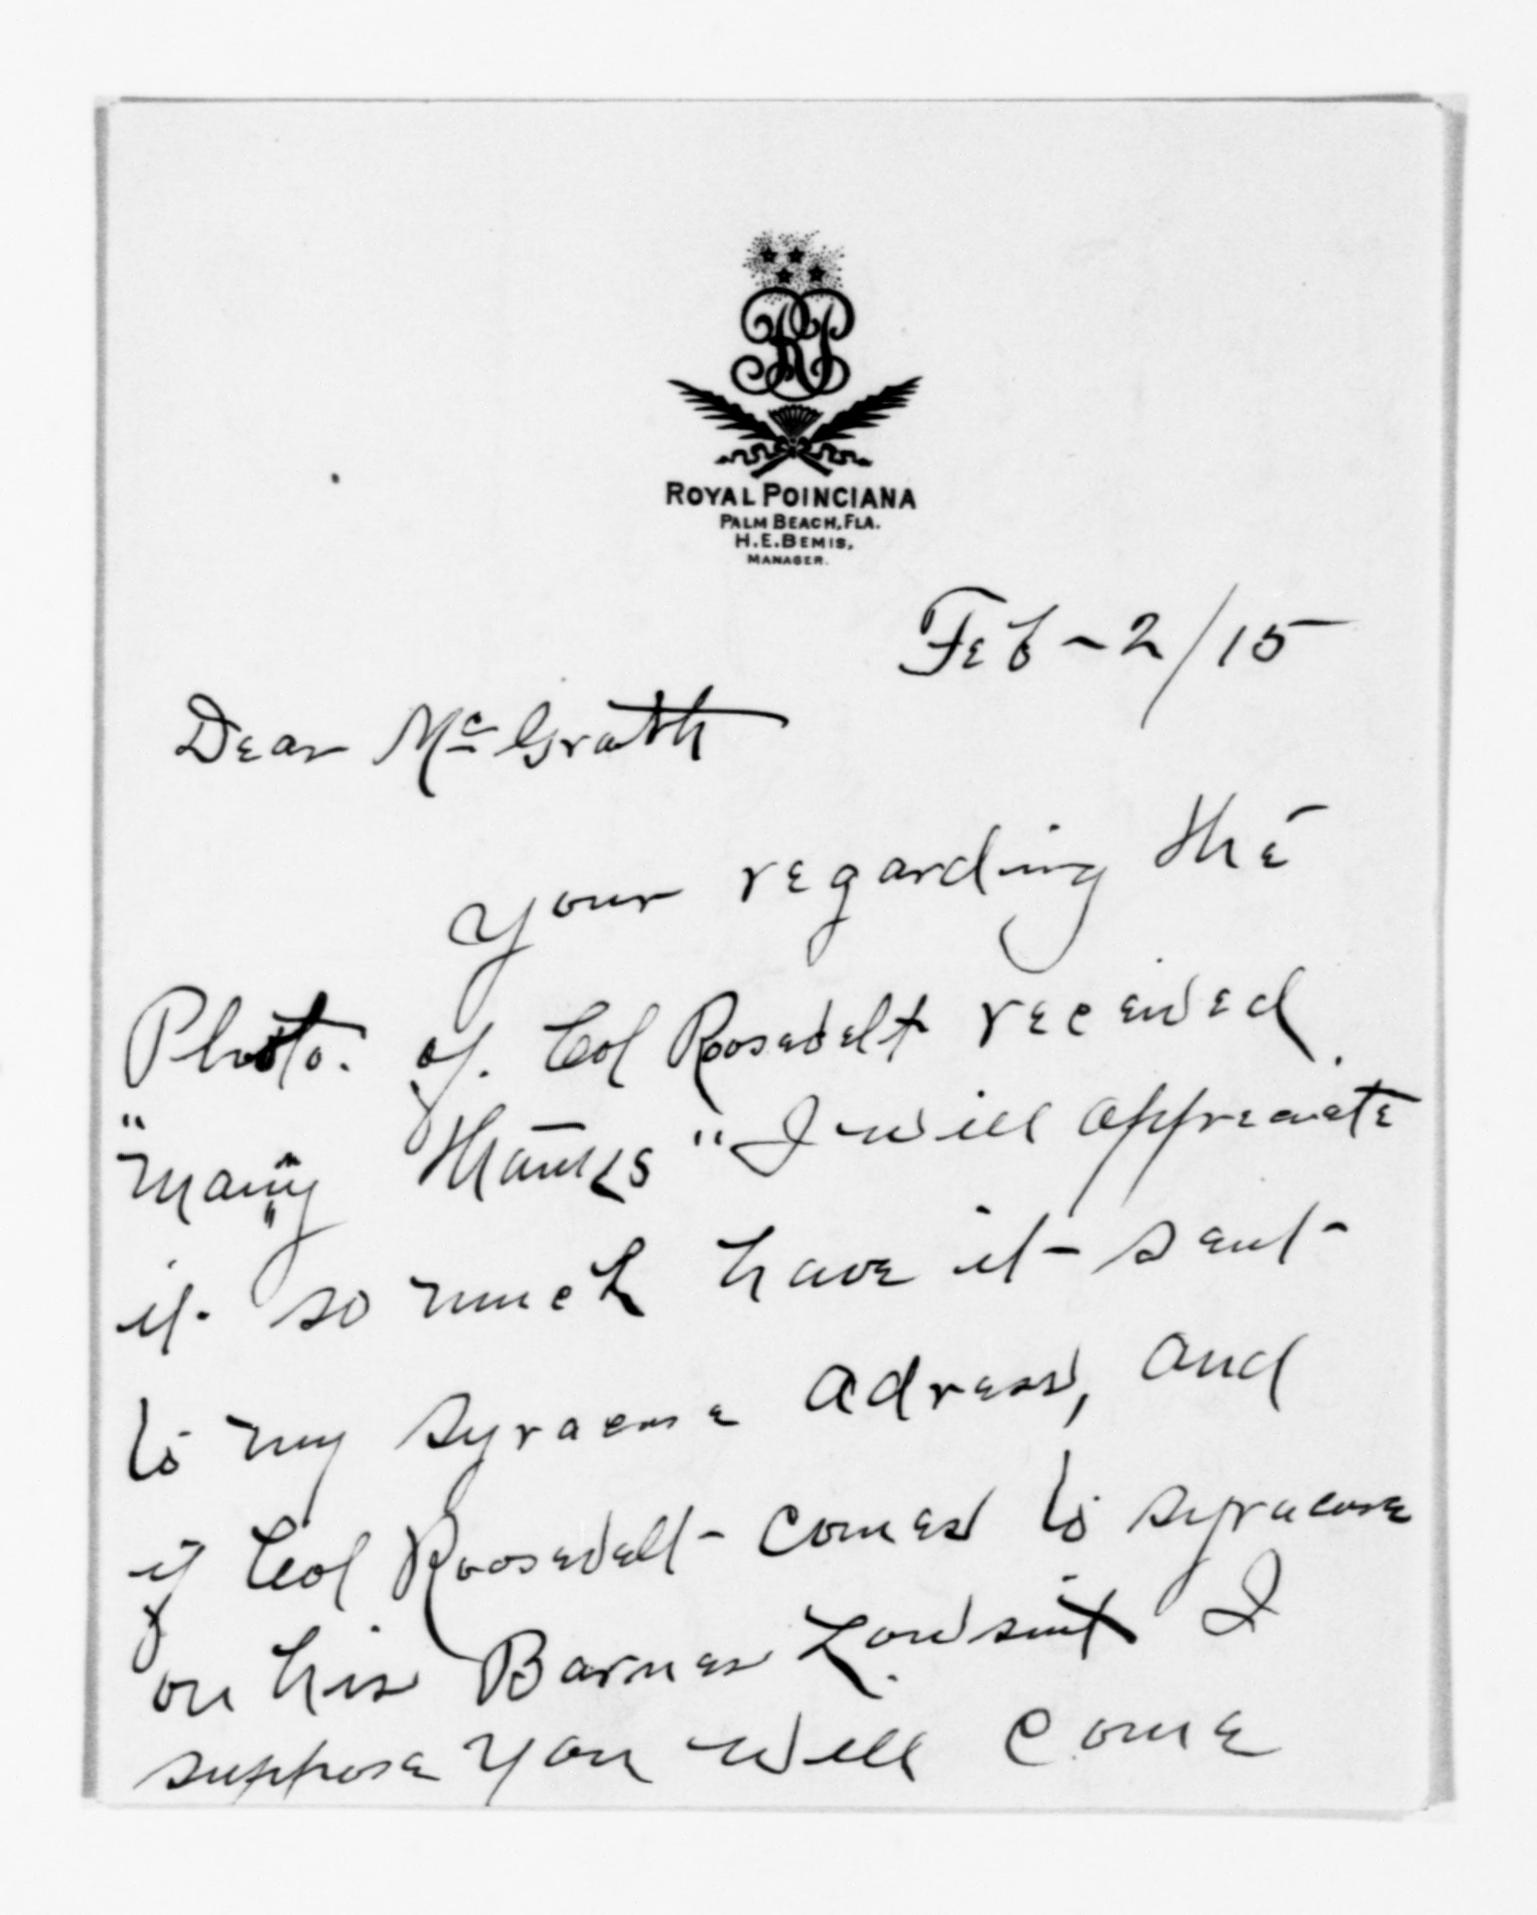 RP
ROYAL POINCIANA
PALM BEACH, FLA.
H.E. BEMIS,
MANAGER.
Feb - 2/15
Dear McGrath
Your regarding the
Photo. of. Col Roosevelt received.
"Many Thanks" I will appreciate
it so much have it - sent -
to my Syracuse adress, and
if Col Roosevelt - comes to Syracuse
on his Barnes Lowsuit I
suppose you will come